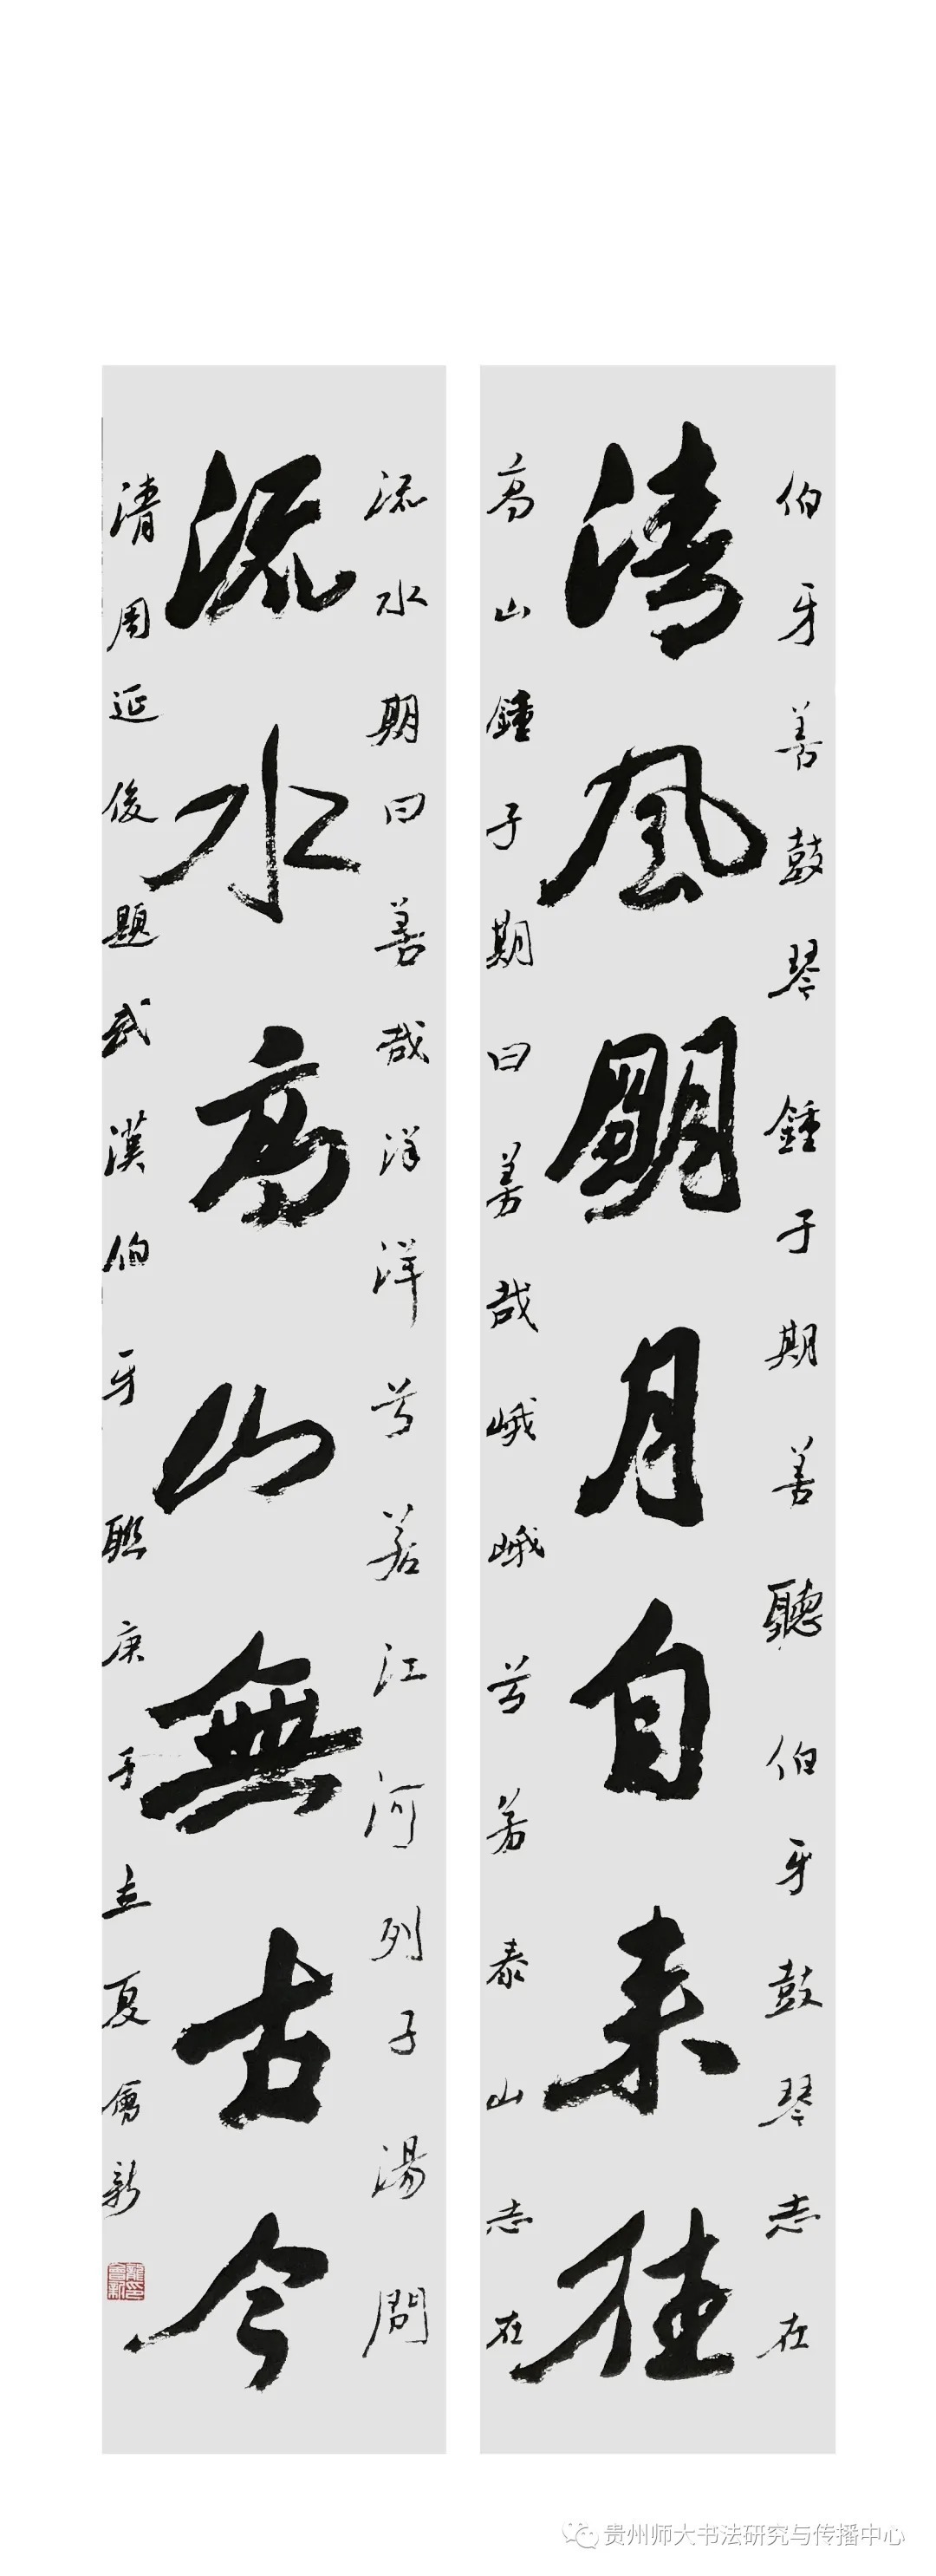 伯牙善鼓琴鍾子期善聽伯牙鼓琴志在
清風朙月自来往
高山鍾子期曰善哉峨峨兮若泰山志在
流水期曰善哉洋洋兮若江河列子湯問
流水高山無古今
清周延俊題武漢伯牙聯庚子立夏會新
贵州师大书法研究与传播中心